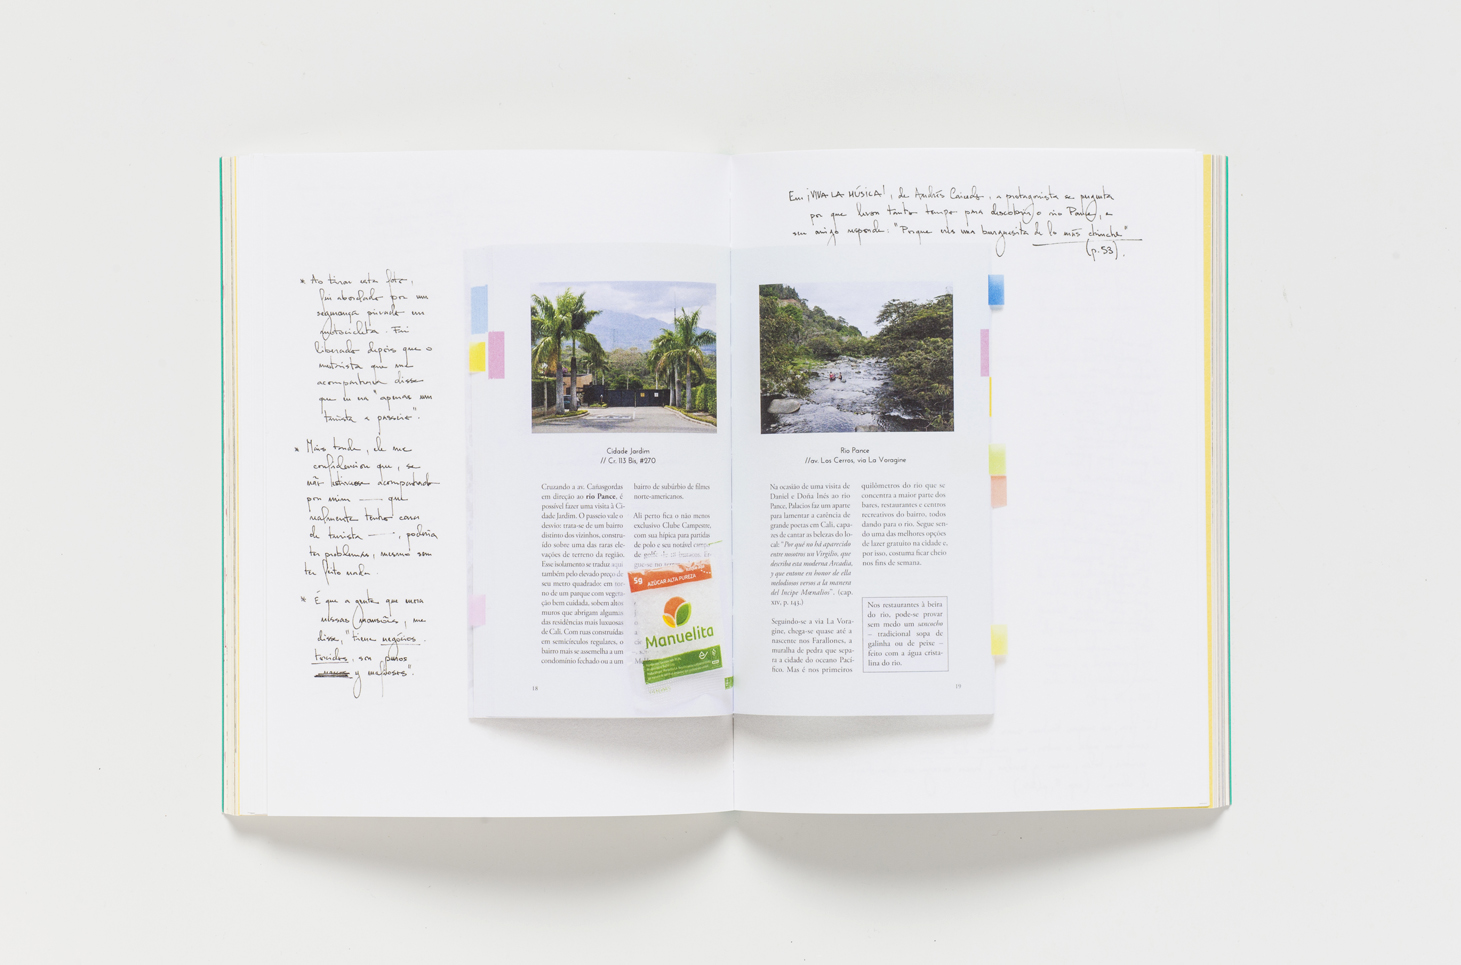 * Ao tirar esta foto,
fui abordado por um
segurança privado em
motocicleta. Fui
liberado depois que o
motorista que me
acompanhava disse
que eu era "apenas um
turista a passeio".
* Mais tarde, ele me
confidenciou que, se
não estivesse acompanhado
por mim — que
realmente tenho cara
de turista —, poderia
ter problemas, mesmo sem
ter feito nada.
* É que a gente que mora
nessas mansões, me
disse, "tiene negócios
torcidos, son
y mafiosos".
Cidade Jardim
// Cr. 113 Bis, #270
Cruzando a av. Cañasgordas
em direção ao rio Pance, é
possível fazer uma visita à Ci-
dade Jardim. O passeio vale o
desvio: trata-se de um bairro
distinto dos vizinhos, constru-
ído sobre uma das raras ele-
vações de terreno da região.
Esse isolamento se traduz aqui
também pelo elevado preço de
seu metro quadrado: em tor-
no de um parque com vegeta-
ção bem cuidada, sobem altos
muros que abrigam algumas
das residências mais luxuosas
de Cali. Com ruas construídas
em semicírculos regulares, o
bairro mais se assemelha a um
condomínio fechado ou a um
bairro de subúrbio de filmes
norte-americanos.
Ali perto fica o não menos
exclusivo Clube Campestre,
com sua hípica para partidas
de polo e seu notável campo
de golfe.
5g AZÚCAR ALTA PUREZA
Manuelita
18
Em ¡VIVA LA MÚSICA!, de Andrés Caicedo, a protagonista se pergunta
por que levou tanto tempo para descobrir o rio Pance, e
seu amigo responde: "Porque eres una burguesita de lo más chinche"
(p.53).
Rio Pance
//av. Los Cerros, via La Voragine
Na ocasião de uma visita de
Daniel e Doña Inés ao rio
Pance, Palacios faz um aparte
para lamentar a carência de
grande poetas em Cali, capa-
zes de cantar as belezas do lo-
cal: "Por qué no há aparecido
entre nosotros un Virgilio, que
describa esta moderna Arcadia,
y que entone en honor de ella
melodiosos versos a la manera
del Incipe Mœnalios". (cap.
XIV, p. 143.)
Seguindo-se a via La Vora-
gine, chega-se quase até a
nascente nos Farallones, a
muralha de pedra que sepa-
ra a cidade do oceano Pací-
fico. Mas é nos primeiros
quilômetros do rio que se
concentra a maior parte dos
bares, restaurantes e centros
recreativos do bairro, todos
dando para o rio. Segue sen-
do uma das melhores opções
de lazer gratuito na cidade e,
por isso, costuma ficar cheio
nos fins de semana.
Nos restaurantes à beira
do rio, pode-se provar
sem medo um sancocho
– tradicional sopa de
galinha ou de peixe –
feito com a água crista-
lina do rio.
19